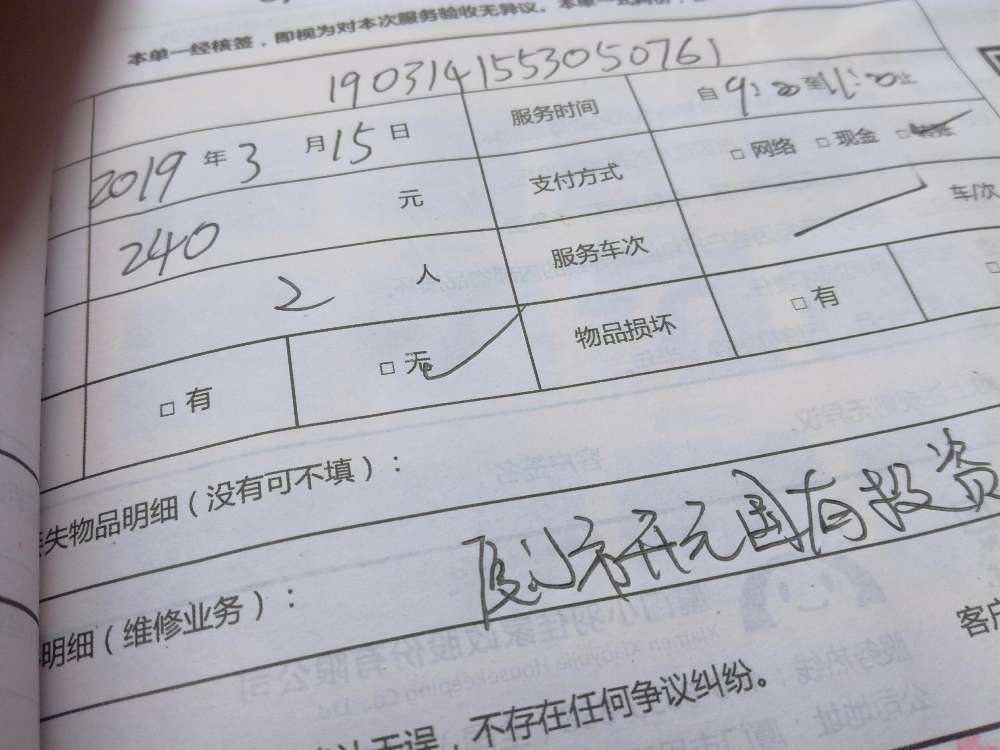 本单一经核签，即视为对本次服务验收无异议。本单一式两份，
1903141553050761
2019年3月15日 服务时间 自9:00至11:00止
240元 支付方式 □网络 □现金 □
2人 服务车次 车/次
□有 □无 物品损坏 □有 □
失物品明细（没有可不填）：
明细（维修业务）： 厦门市开元国有投资
客户
无误，不存在任何争议纠纷。